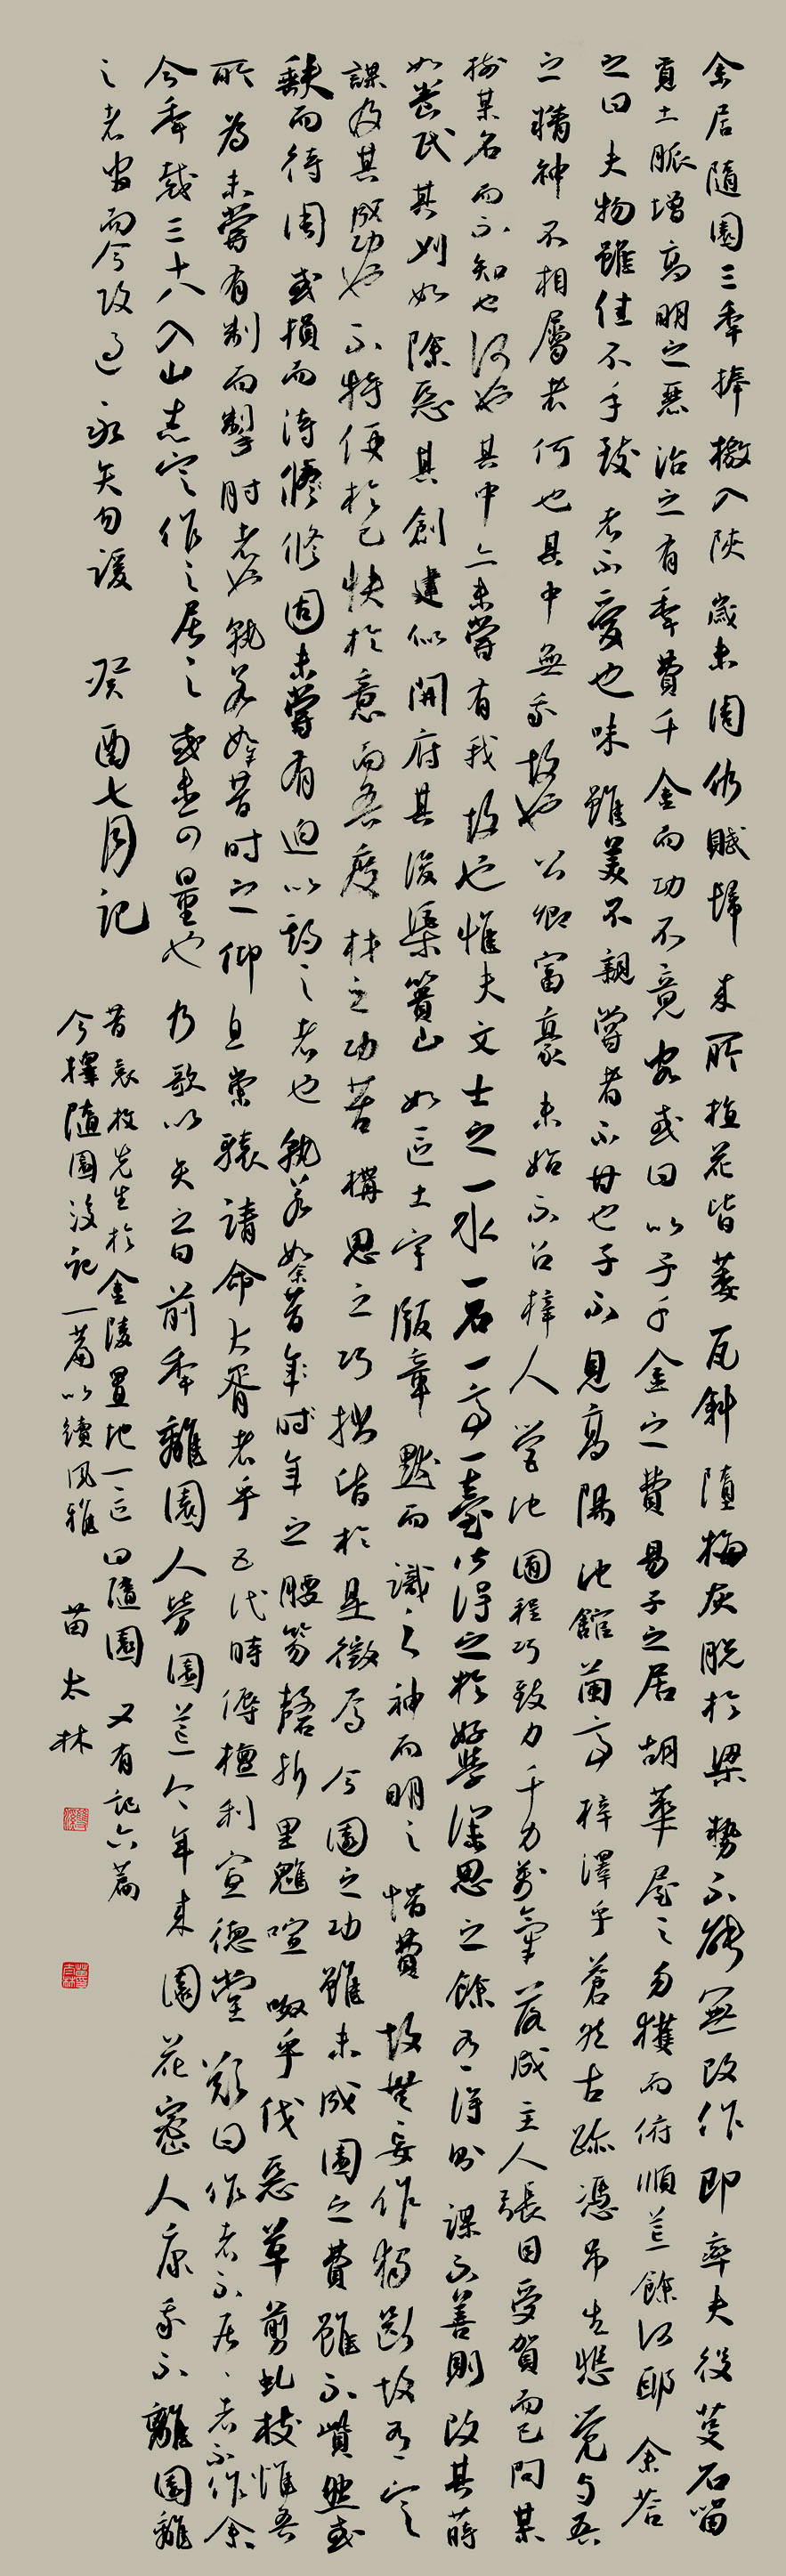 余居隨園三年捧檄入陝歲未周仍賦歸來所植花皆萎瓦斜墮梅灰脫於梁勢不能無改作即率夫役芟石留
覓土脈增高明之惡治之有年費千金而功不竟客或曰以子千金之費易子之居胡華屋之勿獲而俯順荒餘何耶余答
之曰夫物雖佳不手致者不愛也味雖美不親嘗者不甘也子不見高陽池館蘭亭梓澤乎蒼然古跡憑吊生悲覺與吾
之精神不相屬者何也其中無我故也公卿富豪未始不召梓人營池囿程巧致力千力萬氣落成主人張目受賀而已問某
樹某名而不知也何也其中亦未嘗有我故也惟夫文士之一水一石一亭一臺皆得之於好學深思之餘有得則謀不善則改其蒔
如養民其刈如除惡其創建似開府其浚渠簣山如區土宇版章默而識之神而明之惜費故無妄作獨斷故有定
謀及其成功也不特便於己快於意而吾度材之功苦構思之巧拙皆於是徵焉今園之功雖未成園之費雖不貲然或
缺而待周或損而待修固未嘗有迫以期之者也孰若余昔年時年之腰笏磬折里魁喧呶乎伐惡草剪虬枝惟吾
所為未嘗有制而掣肘者也孰若余昔時之仰息崇轅請命大胥者乎五代時孱檀利宣德堂歎曰作者不居居者不作余
今年裁三十八入山志定作之居之或未可量也乃歌以矢之曰前年離園人勞園荒今年來園花密人康我不離園離
之者官而今改過永矢勿諼 癸酉七月記
昔袁枚先生於金陵置地一區曰隨園又有記六篇
今擇隨園後記一篇以續風雅 苗太林